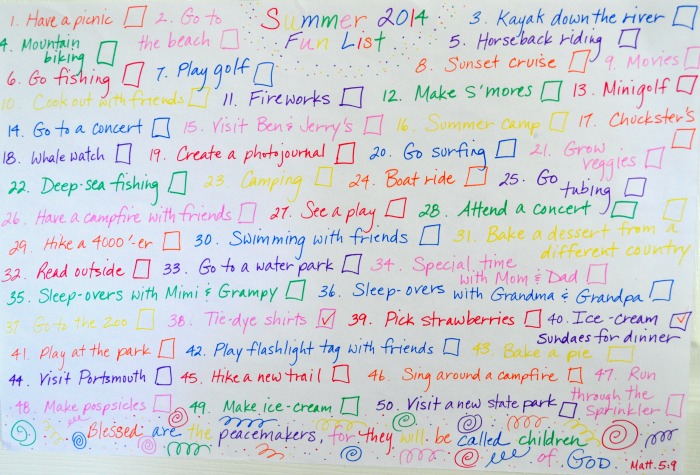 1. Have a picnic 2. Go to the beach Summer 2014 Fun List 3. Kayak down the river
4. Mountain biking 5. Horseback riding
6. Go fishing 7. Play golf 8. Sunset cruise 9. Movies
10. Cook out with friends 11. Fireworks 12. Make S'mores 13. Minigolf
14. Go to a concert 15. Visit Ben & Jerry's 16. Summer Camp 17. Chuckster's
18. Whale watch 19. Create a photojournal 20. Go surfing 21. Grow veggies
22. Deep-sea fishing 23. Camping 24. Boat ride 25. Go tubing
26. Have a campfire with friends 27. See a play 28. Attend a concert
29. Hike a 4000'-er 30. Swimming with friends 31. Bake a dessert from a different country
32. Read outside 33. Go to a water park 34. Special time with Mom & Dad
35. Sleep-overs with Mimi & Grampy 36. Sleep-overs with Grandma & Grandpa
37. Go to the zoo 38. Tie-dye shirts 39. Pick strawberries 40. Ice-cream Sundaes for dinner
41. Play at the park 42. Play flashlight tag with friends 43. Bake a pie
44. Visit Portsmouth 45. Hike a new trail 46. Sing around a campfire 47. Run through the sprinkler
48. Make pospsicles 49. Make ice-cream 50. Visit a new state park
Blessed are the peacemakers, for they will be called children
of God. Matt. 5:9